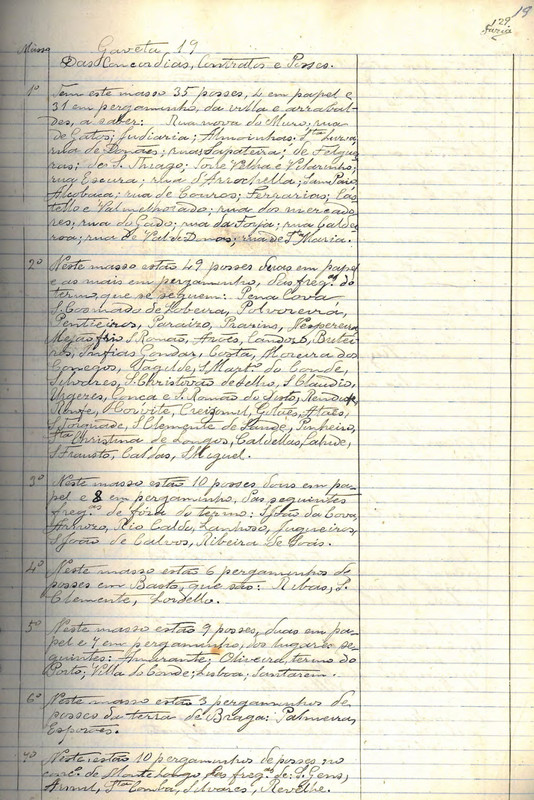 19
129
Faria
Masso Gaveta 19
Das Concordias, Contratos e Posses.
1º Tem este masso 35 posses, 4 em papel e
31 em pergaminho, da villa e arrabal-
des, a saber: Rua nova do Muro, rua
de Gatos; Judiaria; Almoinhas; Sta Luzia,
rua de Donães; rua Sapateira; de Felguei
ras; de S. Thiago; Torre Velha e Vilarinho;
rua Escura; rua d'Arrochella; Sam Paio
Alcobaça; rua de Couros; Ferrarias; Cas
tello e Valmelhorado; rua dos mercado
res; rua do Gado; rua da Forja; rua Calde
roa; rua de Val de Donas; rua de Sta Maria.
2º Neste masso estão 49 posses duas em papel
e as mais em pergaminho, das fregas do
termo, que se seguem: Pena Cova
S. Cosmado de Lobeira, Polvoreira,
Pentieiros, Paraizo, Prazins, Nespereira
Mejão frio, S. Romão, Arões, Candoso, Brutei
ros, Infias, Gondar, Costa, Moreira dos
Conegos, Tagilde, S. Martº do Conde,
Silvares, S. Christovão de Selho, S. Claudio,
Urgezes, Conca e S. Romão do Sesto, Rendufe,
Ronfe, Corvite, Creixomil, Gilães, Atães,
S. Torquade, S. Clemente de Sande, Pinheiro,
Sta Christina de Longos, Caldellas,
S. Frausto, Caldas, S. Miguel.
3º Neste masso estão 10 posses dous em pa-
pel e 8 em pergaminho, das seguintes
fregas de fóra do termo: S. João da Cova,
Rio Caldo, Lanhoso, Jugueiros,
S. João de Calvos, Ribeira de Sois.
4º Neste masso estão 6 pergaminhos de
posses em Basto, que são: Ribas, S.
Clemente, Lordello.
5º Neste masso estão 9 posses, duas em pa-
pel e 7 em pergaminho, dos lugares se-
guintes: Amarante; Oliveira, termo do
Porto; Villa do Conde; Lisboa; Santarem.
6º Neste masso estão 3 pergaminhos de
posses da terra de Braga: Palmeira,
Esporões.
7º Neste estão 10 pergaminhos de posses no
conc.º de Monte Longo das fregas de: S. Gens,
Armil, Sta Comba, Silvares, Revelhe.